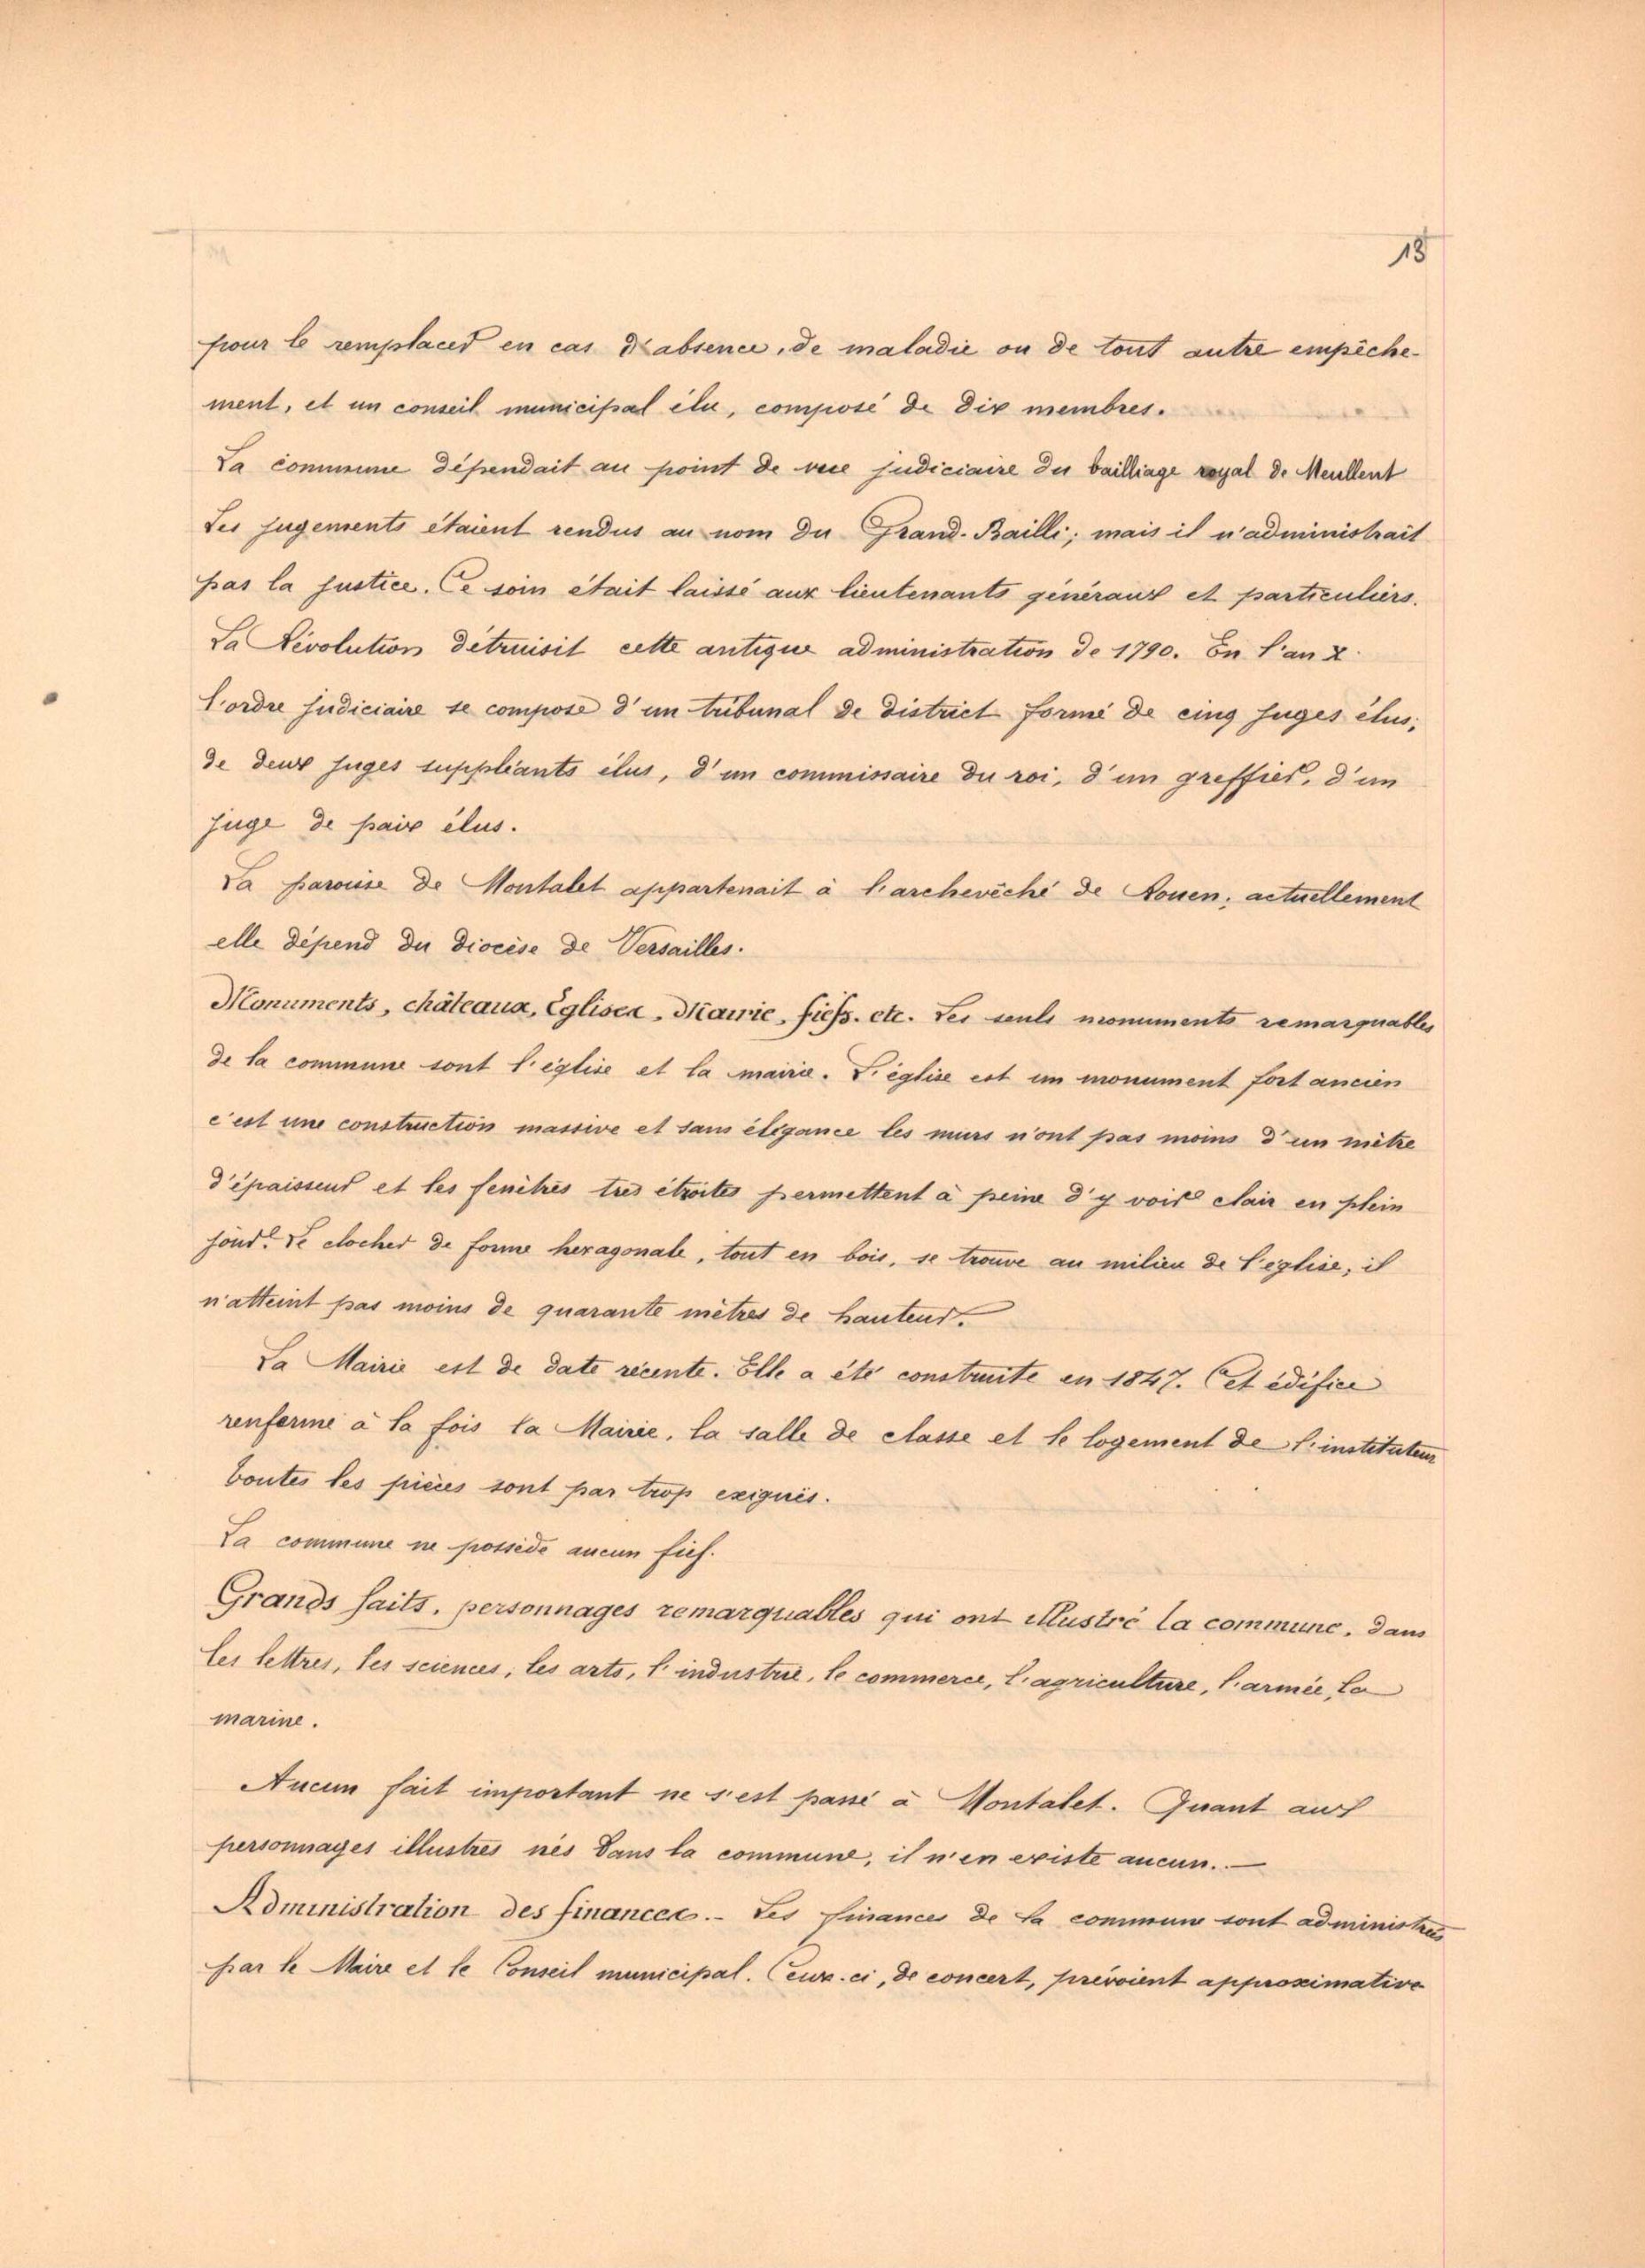 18
pour le remplacer en cas d'absence, de maladie ou de tout autre empêche-
ment, et un conseil municipal élu, composé de dix membres.
La commune dépendait au point de vue judiciaire du bailliage royal de Meullent
Les jugements étaient rendus au nom du Grand-Bailli; mais il n'administrait
pas la justice. Ce soin était laissé aux lieutenants généraux et particuliers.
La Révolution détruisit cette antique administration de 1790. En l'an X
l'ordre judiciaire se compose d'un tribunal de district formé de cinq juges élus;
de deux juges suppléants élus, d'un commissaire du roi, d'un greffier, d'un
juge de paix élus.
La paroisse de Montalet appartenait à l'archevêché de Rouen; actuellement
elle dépend du diocèse de Versailles.
Monuments, châteaux, Églises, Mairie, fiefs. etc. Les seuls monuments remarquables
de la commune sont l'église et la mairie. L'église est un monument fort ancien
c'est une construction massive et sans élégance les murs n'ont pas moins d'un mètre
d'épaisseur et les fenêtres très étroites permettent à peine d'y voir clair en plein
jour. Le clocher de forme hexagonale, tout en bois, se trouve au milieu de l'église; il
n'atteint pas moins de quarante mètres de hauteur.
La Mairie est de date récente. Elle a été construite en 1847. Cet édifice
renferme à la fois la Mairie, la salle de classe et le logement de l'instituteur
toutes les pièces sont par trop exiguës.
La commune ne possède aucun fief.
Grands faits, personnages remarquables qui ont illustré la commune, dans
les lettres, les sciences, les arts, l'industrie, le commerce, l'agriculture, l'armée, la
marine.
Aucun fait important ne s'est passé à Montalet. Quant aux
personnages illustres nés dans la commune, il n'en existe aucun. —
Administration des finances. - Les finances de la commune sont administrées
par le Maire et le Conseil municipal. Ceux-ci, de concert, prévoient approximative